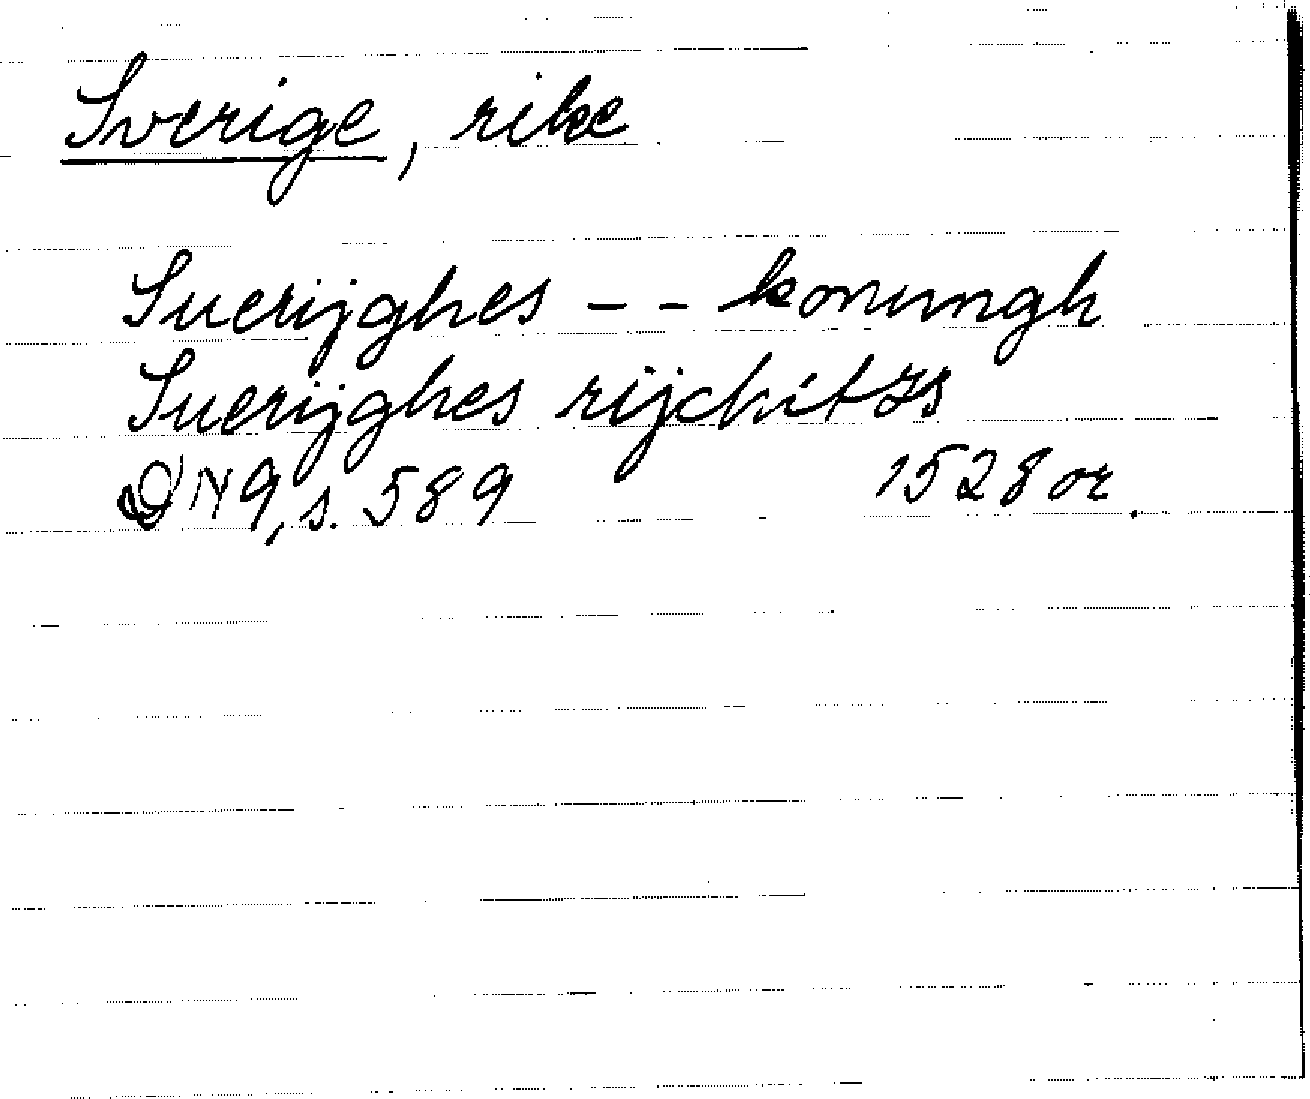 Sverige, rike
Suerijghes - - konungh
Suerijghes rijchitzs
DN 9, s. 589 1528 or.